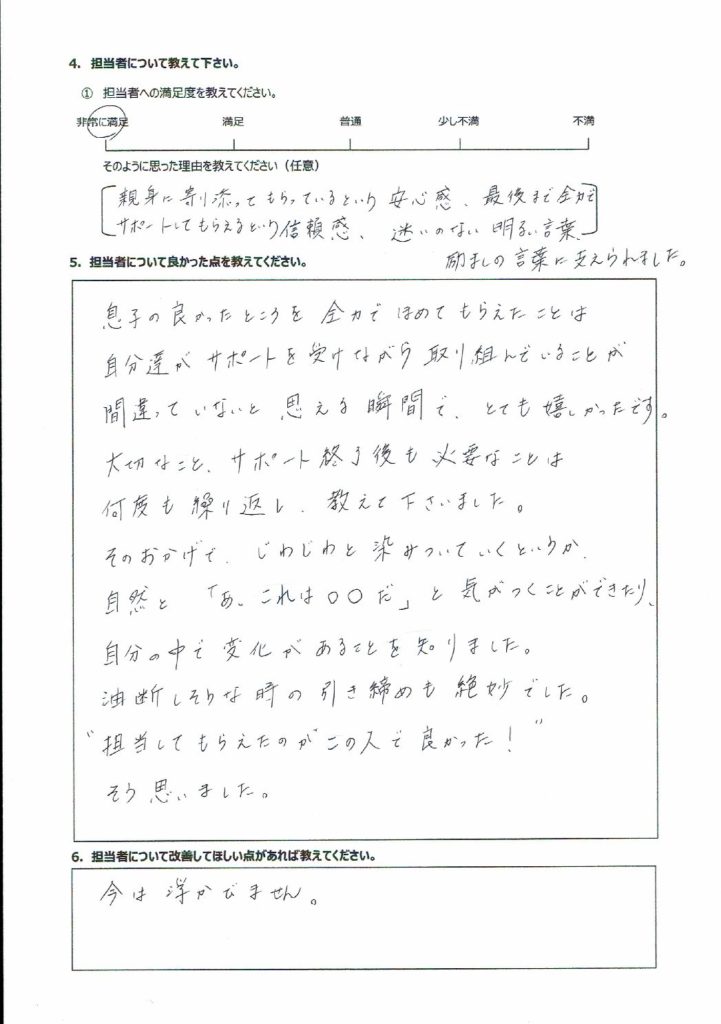 4. 担当者について教えて下さい。
① 担当者への満足度を教えてください。
非常に満足 満足 普通 少し不満 不満
そのように思った理由を教えてください（任意）
親身に寄り添ってもらっているという安心感、最後まで全力で
サポートしてもらえるという信頼感、迷いのない明るい言葉、
励ましの言葉に支えられました。
5. 担当者について良かった点を教えてください。
息子の良かったところを全力でほめてもらえたことは
自分達がサポートを受けながら取り組んでいることが
間違っていないと思える瞬間で、とても嬉しかったです。
大切なこと、サポート終了後も必要なことは
何度も繰り返し、教えて下さいました。
そのおかげで、じわじわと染みついていくというか、
自然と「あ、これは〇〇だ」と気がつくことができたり、
自分の中で変化があることを知りました。
油断しそうな時の引き締めも絶妙でした。
“担当してもらえたのがこの人で良かった！”
そう思いました。
6. 担当者について改善してほしい点があれば教えてください。
今は浮かびません。